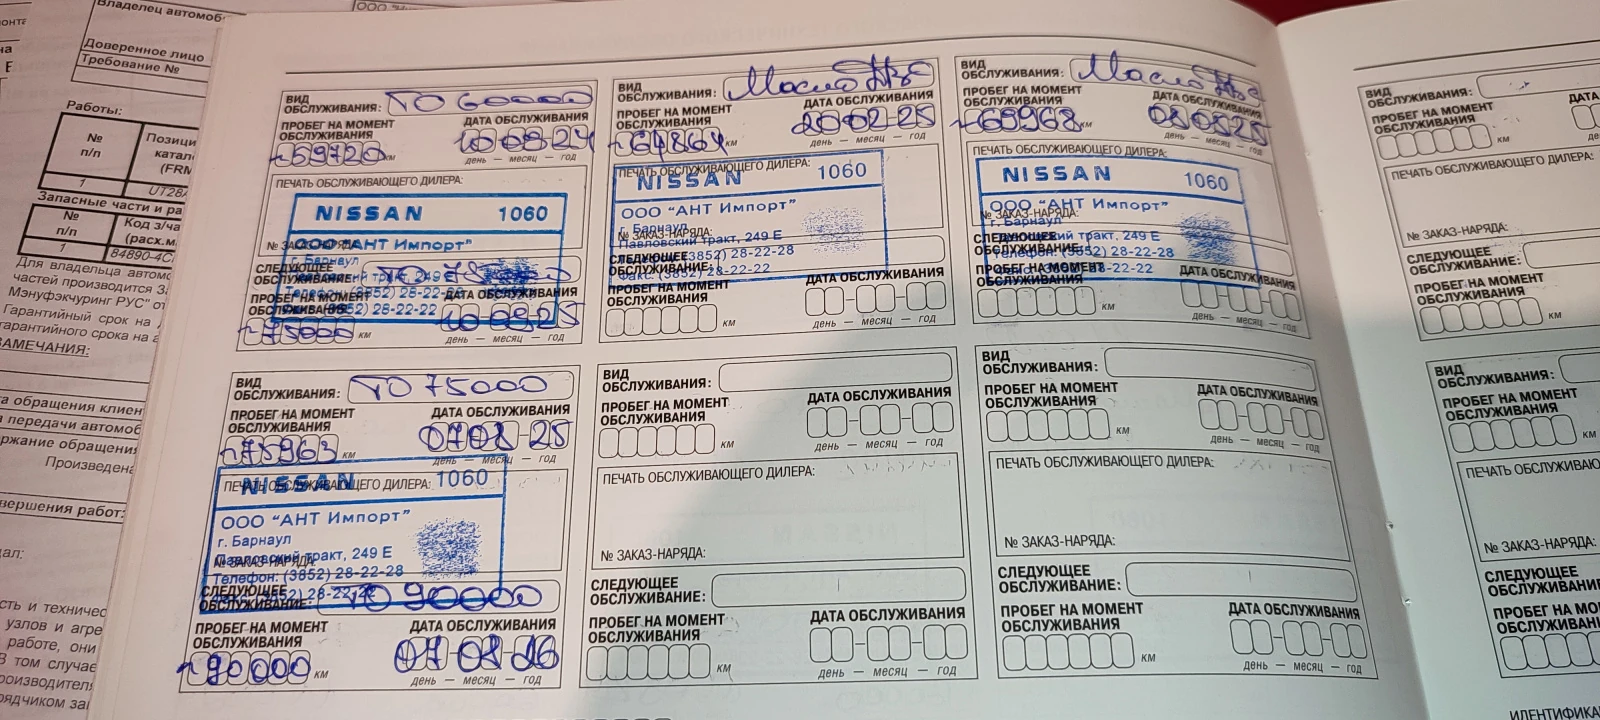 Владелец автомоб
Доверенное лицо
Требование №
Работы:
№ п/п
Позици
катал
(FRM
1
UT28
Запасные части и ра
№ п/п
Код з/ча
(расх.м
1
84890-4C
Для владельца автомо
частей производится З
Мэнуфэкчуринг РУС" от
Гарантийный срок на
гарантийного срока на
АМЕЧАНИЯ:
а обращения клиен
а передачи автомоб
ржание обращения
Произведена
вершения работ:
сть и техничес
узлов и агре
работе, они
В том случае
роизводител
рядчиком за
ВИД ОБСЛУЖИВАНИЯ: ТО 60000
ПРОБЕГ НА МОМЕНТ ОБСЛУЖИВАНИЯ
ДАТА ОБСЛУЖИВАНИЯ
59720 км
10 09 24
день — месяц — год
ПЕЧАТЬ ОБСЛУЖИВАЮЩЕГО ДИЛЕРА:
NISSAN 1060
№ ЗАКАЗ-НАРЯДА:
ООО "АНТ Импорт"
г. Барнаул
СЛЕДУЮЩЕЕ ОБСЛУЖИВАНИЕ:
тракт, 249 Е
(3852) 28-22-
28-22-22
ПРОБЕГ НА МОМЕНТ ОБСЛУЖИВАНИЯ
ДАТА ОБСЛУЖИВАНИЯ
~75000 км
10 09 25
день — месяц — год
ВИД ОБСЛУЖИВАНИЯ: Масло
ПРОБЕГ НА МОМЕНТ ОБСЛУЖИВАНИЯ
ДАТА ОБСЛУЖИВАНИЯ
64864 км
20 02 25
день — месяц — год
ПЕЧАТЬ ОБСЛУЖИВАЮЩЕГО ДИЛЕРА:
NISSAN 1060
ООО "АНТ Импорт"
г. Барнаул
№ ЗАКАЗ-НАРЯДА:
Павловский тракт, 249 Е
СЛЕДУЮЩЕЕ ОБСЛУЖИВАНИЕ:
(3852) 28-22-28
Факс: (3852) 28-22-22
ПРОБЕГ НА МОМЕНТ ОБСЛУЖИВАНИЯ
ДАТА ОБСЛУЖИВАНИЯ
км
день — месяц — год
ВИД ОБСЛУЖИВАНИЯ: Масло
ПРОБЕГ НА МОМЕНТ ОБСЛУЖИВАНИЯ
ДАТА ОБСЛУЖИВАНИЯ
69968 км
день — месяц — год
ПЕЧАТЬ ОБСЛУЖИВАЮЩЕГО ДИЛЕРА:
NISSAN 1060
ООО "АНТ Импорт"
№ ЗАКАЗ-НАРЯДА:
г. Барнаул
тракт, 249 Е
СЛЕДУЮЩЕЕ ОБСЛУЖИВАНИЕ:
Телефон: (3852) 28-22-28
28-22-22
ПРОБЕГ НА МОМЕНТ ОБСЛУЖИВАНИЯ
ДАТА ОБСЛУЖИВАНИЯ
км
день — месяц — год
ВИД ОБСЛУЖИВАНИЯ: ТО 75000
ПРОБЕГ НА МОМЕНТ ОБСЛУЖИВАНИЯ
ДАТА ОБСЛУЖИВАНИЯ
75963 км
07 08 25
день — месяц — год
ПЕЧАТЬ ОБСЛУЖИВАЮЩЕГО ДИЛЕРА:
NISSAN 1060
ООО "АНТ Импорт"
г. Барнаул
Павловский тракт, 249 Е
№ ЗАКАЗ-НАРЯДА:
Телефон: (3852) 28-22-28
СЛЕДУЮЩЕЕ ОБСЛУЖИВАНИЕ: ТО 90000
ПРОБЕГ НА МОМЕНТ ОБСЛУЖИВАНИЯ
ДАТА ОБСЛУЖИВАНИЯ
~90000 км
07 08 26
день — месяц — год
ВИД ОБСЛУЖИВАНИЯ:
ПРОБЕГ НА МОМЕНТ ОБСЛУЖИВАНИЯ
ДАТА ОБСЛУЖИВАНИЯ
км
день — месяц — год
ПЕЧАТЬ ОБСЛУЖИВАЮЩЕГО ДИЛЕРА:
№ ЗАКАЗ-НАРЯДА:
СЛЕДУЮЩЕЕ ОБСЛУЖИВАНИЕ:
ПРОБЕГ НА МОМЕНТ ОБСЛУЖИВАНИЯ
ДАТА ОБСЛУЖИВАНИЯ
км
день — месяц — год
ВИД ОБСЛУЖИВАНИЯ:
ПРОБЕГ НА МОМЕНТ ОБСЛУЖИВАНИЯ
ДАТА ОБСЛУЖИВАНИЯ
км
день — месяц — год
ПЕЧАТЬ ОБСЛУЖИВАЮЩЕГО ДИЛЕРА:
№ ЗАКАЗ-НАРЯДА:
СЛЕДУЮЩЕЕ ОБСЛУЖИВАНИЕ:
ПРОБЕГ НА МОМЕНТ ОБСЛУЖИВАНИЯ
ДАТА ОБСЛУЖИВАНИЯ
км
день — месяц — год
ВИД ОБСЛУЖИВАНИЯ:
ПРОБЕГ НА МОМЕНТ ОБСЛУЖИВАНИЯ
ДАТА
км
ПЕЧАТЬ ОБСЛУЖИВАЮЩЕГО ДИЛЕРА:
№ ЗАКАЗ-НАРЯДА:
СЛЕДУЮЩЕЕ ОБСЛУЖИВАНИЕ:
ПРОБЕГ НА МОМЕНТ ОБСЛУЖИВАНИЯ
км
ВИД ОБСЛУЖИВАНИЯ:
ПРОБЕГ НА МОМЕНТ ОБСЛУЖИВАНИЯ
км
ПЕЧАТЬ ОБСЛУЖИВАЮ
№ ЗАКАЗ-НАРЯДА:
СЛЕДУЮЩЕЕ ОБСЛУЖИВАНИЕ:
ПРОБЕГ НА МО
ОБСЛУЖИВАНИ
ИДЕНТИФИКА